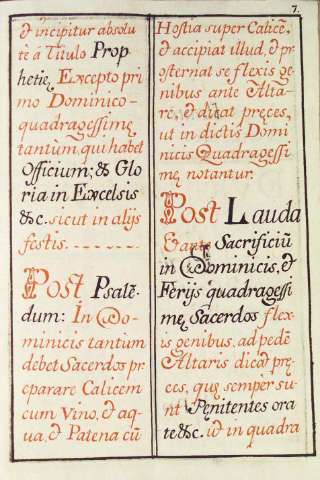 7.
& incipitur absolu
te á Titulo Prop
hetię, Excepto pri
mo Dominico-
quadragessimę
tantùm, qui habet
Officium; & Glo
ria in Excelsis
&c. sicut in alijs
festis.
Post Psalē
dum: In Do-
minicis tantùm
debet Sacerdos pr
eparare Calicem
cum Vino, & aq-
ua, & Patena cū
Hostia super Calicē,
& accipiat illud, & pr
osternat se flexis ge
nibus ante Alta-
re, & dicat pręces,
ut in dictis Dómi
nicis Quadragessi
mę, notantur.
Post Lauda
& ante Sacrificiū
in Dominicis, &
Ferijs quadragessi
mę, Sacerdos flex-
is genibus, ad pedē
Altaris dicat prę-
ces, quę semper su-
nt Penitentes ora
te &c. ut in quadra